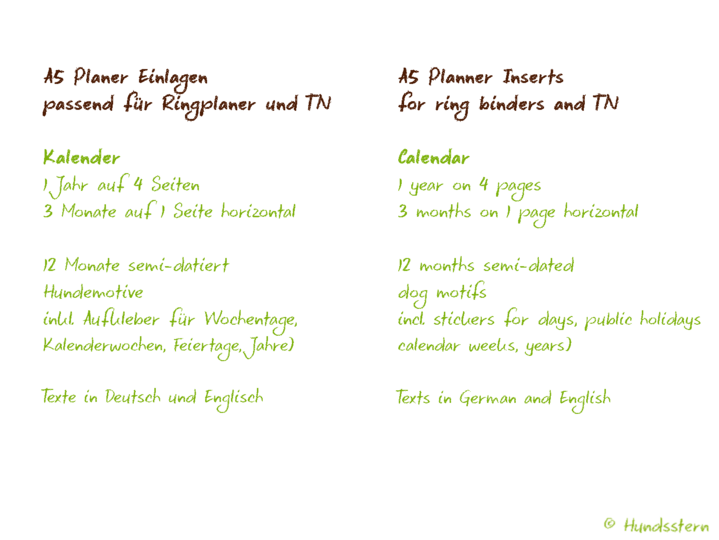 A5 Planer Einlagen
passend für Ringplaner und TN
Kalender
1 Jahr auf 4 Seiten
3 Monate auf 1 Seite horizontal
12 Monate semi-datiert
Hundemotive
inkl. Aufkleber für Wochentage,
Kalenderwochen, Feiertage, Jahre)
Texte in Deutsch und Englisch
A5 Planner Inserts
for ring binders and TN
Calendar
1 year on 4 pages
3 months on 1 page horizontal
12 months semi-dated
dog motifs
incl. stickers for days, public holidays
calendar weeks, years)
Texts in German and English
© Hundsstern